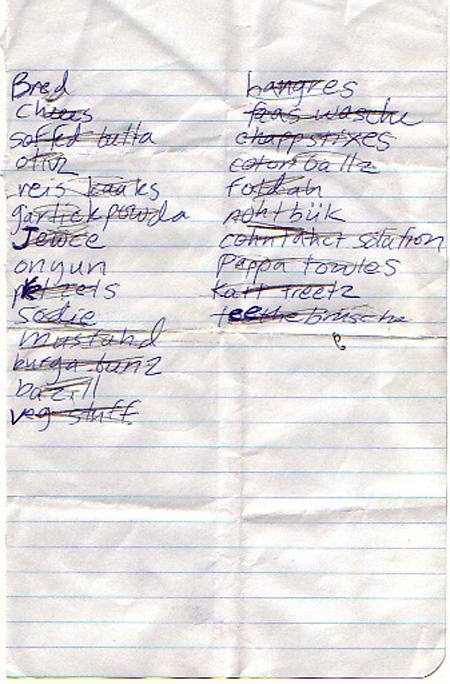 Bred
Chees
soffed butta
olivz
reis kaaks
garlickpowda
Jewce
onyun
pretzels
Sodie
mustahd
burga bunz
bazill
veg stuff
hangres
feas wasche
chappstixes
coton ballz
foldah
nohtbük
cohntahct solution
pappa towles
Katt treetz
teethe brusche